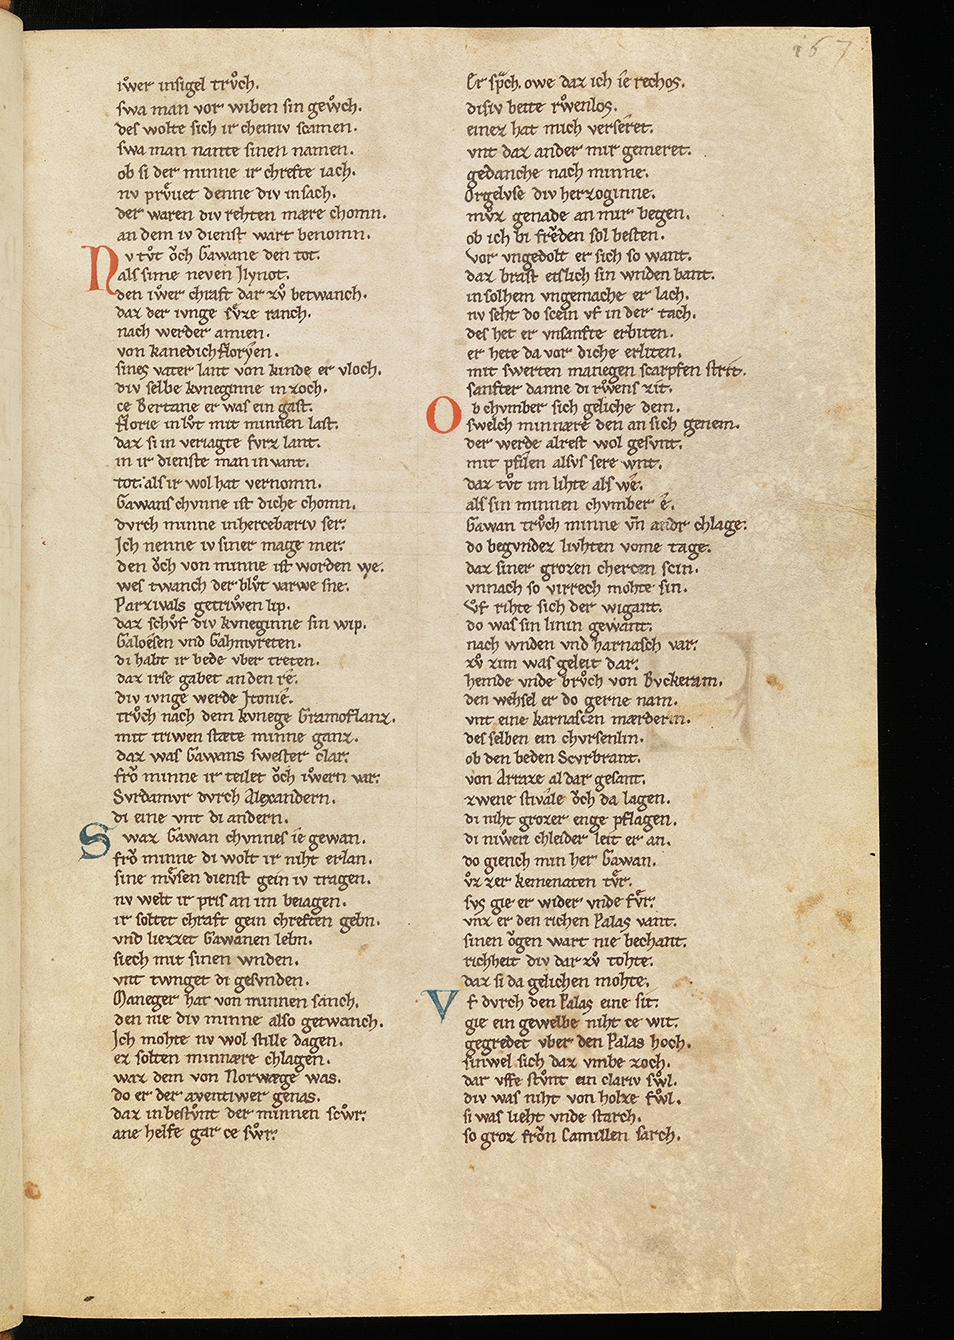 167
iwer insigel trůch.
swa man vor wiben sin gewͦch.
des wolte sich ir cheiniv scamen.
swa man nante sinen namen.
ob si der minne ir chrefte iach.
nv prv̊uet denne div insach.
der waren div rehten mære chomn.
an dem iv dienst wart benomn.
Nv tv̊t ǒch Gawane den tot.
als sime neven Jlynot.
den iwer chraft dar zv̊ betwanch.
daz der ivnge sv̊ze ranch.
nach werder amien.
von kanedich floryen.
sines vater lant von kinde er vloch.
div selbe kvneginne in zoch.
ce Bertane er was ein gast.
florie in lv̊t mit minnen last.
daz si in veriagte fvrz lant.
in ir dienste man in vant.
tot. als ir wol hat vernomn.
Gawans chvnne ist diche chomn.
dvrch minne in hercebæriv ser.
Jch nenne iv siner mage mer.
den ǒch von minne ist worden we.
wes twanch der blv̊t varwe sne.
Parzivals getriwen lip.
daz schv̊f div kvneginne sin wip.
Galoesen vnd Gahmvreten.
di habt ir bede vber treten.
daz irse gabet an den re.
div ivnge werde Jtonie.
trv̊ch nach dem kvnege Gramoflanz.
mit triwen stæte minne ganz.
daz was Gawans swester clar.
frǒ minne ir teilet ǒch iwern var.
Svrdamvr dvrch Alexandern.
di eine vnt di andern.
Swaz Gawan chvnnes ie gewan.
frǒ minne di wolt ir niht erlan.
sine mv̊sen dienst gein iv tragen.
nv welt ir pris an im beiagen.
ir soltet chraft gein chreften gebn.
vnd liezzet Gawanen lebn.
siech mit sinen wnden.
vnt twnget di gesvnden.
Maneger hat von minnen sanch.
den nie div minne also getwanch.
Jch mohte nv wol stille dagen.
ez solten minnære chlagen.
waz dem von Norwæge was.
do er der aventiwer genas.
daz in bestv̊nt der minnen scwͦr.
ane helfe gar ce swͦr.
Er sp̄ch. owe daz ich ie rechos.
disiv bette rv̊wenlos.
einez hat mich verseret.
vnt daz ander mir gemeret.
gedanche nach minne.
Orgelvse div herzoginne.
mv̊z genade an mir begen.
ob ich bi freden sol besten.
vor vngedolt er sich so want.
daz brast etslich sin wnden bant.
in solhem vngemache er lach.
nv seht do scein vf in der tach.
des het er vnsanfte erbiten.
er hete da vor diche erliten.
mit swerten manegen scarpfen strit.
sanfter danne di rv̊wens zit.
Ob chvmber sich geliche dem.
swelch minnære den an sich genem.
der werde alrest wol gesvnt.
mit pfilen alsvs sere wnt.
daz tv̊t im lihte als we.
als sin minnen chvmber e.
Gawan trv̊ch minne vn̄ andr chlage.
do begvndez livhten vome tage.
daz siner grozen cherzen scin.
vnnach so virrech mohte sin.
v̊f rihte sich der wigant.
do was sin linin gewant.
nach wnden vnd harnasch var.
zv̊ zim was geleit dar.
hemde vnde brv̊ch von Bvckeram.
den wehsel er do gerne nam.
vnt eine karnaschen mærderin.
des selben ein chvrsenlin.
ob den beden Scvrbrant.
von Arraze al dar gesant.
zwene stivale ǒch da lagen.
di niht grozer enge pflagen.
di niwen chleider leit er an.
do giench min her Gawan.
v̊z zer kemenaten tv̊r.
svs gie er wider vnde fv̊r.
vnz er den richen Palas vant.
sinen ǒgen wart nie bechant.
richheit div dar zv̊ tohte.
daz si da gelichen mohte.
Vf dvrch den Palas eine sit.
gie ein gewelbe niht ce wit.
gegredet vber den Palas hoch.
sinwel sich daz vmbe zoch.
dar vffe stv̊nt ein clariv sv̊l.
div was niht von holze fv̊l.
si was lieht vnde starch.
so groz frǒn Camillen sarch.